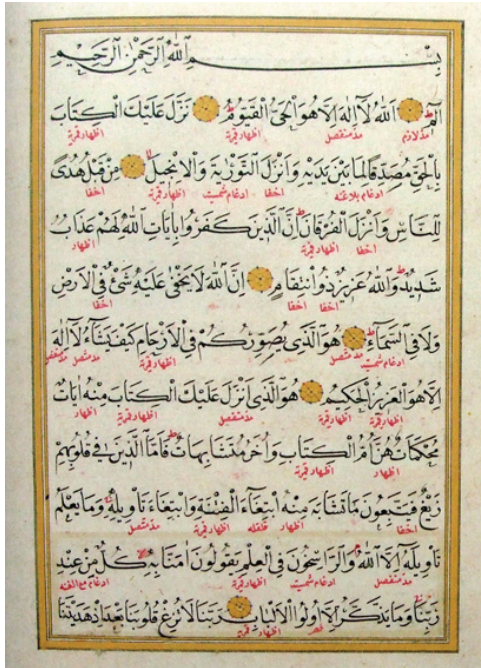 بِسْمِ اللّٰهِ الرَّحْمٰنِ الرَّحِيمِ
الٓمٓ اللّٰهُ لَٓا اِلٰهَ اِلَّا هُوَ الْحَىُّ الْقَيُّومُ نَزَّلَ عَلَيْكَ الْكِتَابَ
مد لازم مد منفصل اظهار قمرية اظهار قمرية
بِالْحَقِّ مُصَدِّقًا لِمَا بَيْنَ يَدَيْهِ وَاَنْزَلَ التَّوْرٰيةَ وَالْاِنْجِيلَ مِنْ قَبْلُ هُدًى
ادغام بلاغنه اخفا ادغام شمسيت اظهار قمرية اخفا
لِلنَّاسِ وَاَنْزَلَ الْفُرْقَانَ اِنَّ الَّذِينَ كَفَرُوا بِاٰيَاتِ اللّٰهِ لَهُمْ عَذَابٌ
اخفا اظهار قمرية اظهار
شَدِيدٌ وَاللّٰهُ عَزِيزٌ ذُو انْتِقَامٍ اِنَّ اللّٰهَ لَا يَخْفٰى عَلَيْهِ شَىْءٌ فِى الْاَرْضِ
اخفا اخفا اخفا
وَلَا فِى السَّمَٓاءِ هُوَ الَّذِى يُصَوِّرُكُمْ فِى الْاَرْحَامِ كَيْفَ يَشَٓاءُ لَٓا اِلٰهَ
ادغام شمسيت مد متصل اظهار قمرية مد متصل مد منفصل
اِلَّا هُوَ الْعَزِيزُ الْحَكِيمُ هُوَ الَّذِٓى اَنْزَلَ عَلَيْكَ الْكِتَابَ مِنْهُ اٰيَاتٌ
اظهار قمرية اظهار قمرية مد منفصل اظهار قمرية اظهار
مُحْكَمَاتٌ هُنَّ اُمُّ الْكِتَابِ وَاُخَرُ مُتَشَابِهَاتٌ فَاَمَّا الَّذِينَ فِى قُلُوبِهِمْ
اظهار اظهار قمرية
زَيْغٌ فَيَتَّبِعُونَ مَا تَشَابَهَ مِنْهُ ابْتِغَٓاءَ الْفِتْنَةِ وَابْتِغَٓاءَ تَاْوِيلِهِ وَمَا يَعْلَمُ
اخفا اظهار قلقله اظهار قمرية مد متصل
تَاْوِيلَهُٓ اِلَّا اللّٰهُ وَالرَّاسِخُونَ فِى الْعِلْمِ يَقُولُونَ اٰمَنَّا بِهِ كُلٌّ مِنْ عِنْدِ
مد منفصل ادغام شمسيت اظهار قمرية ادغام مع الغنه
رَبِّنَا وَمَا يَذَّكَّرُ اِلَّٓا اُولُوا الْاَلْبَابِ رَبَّنَا لَا تُزِغْ قُلُوبَنَا بَعْدَ اِذْ هَدَيْتَنَا
قصر اظهار قمرية